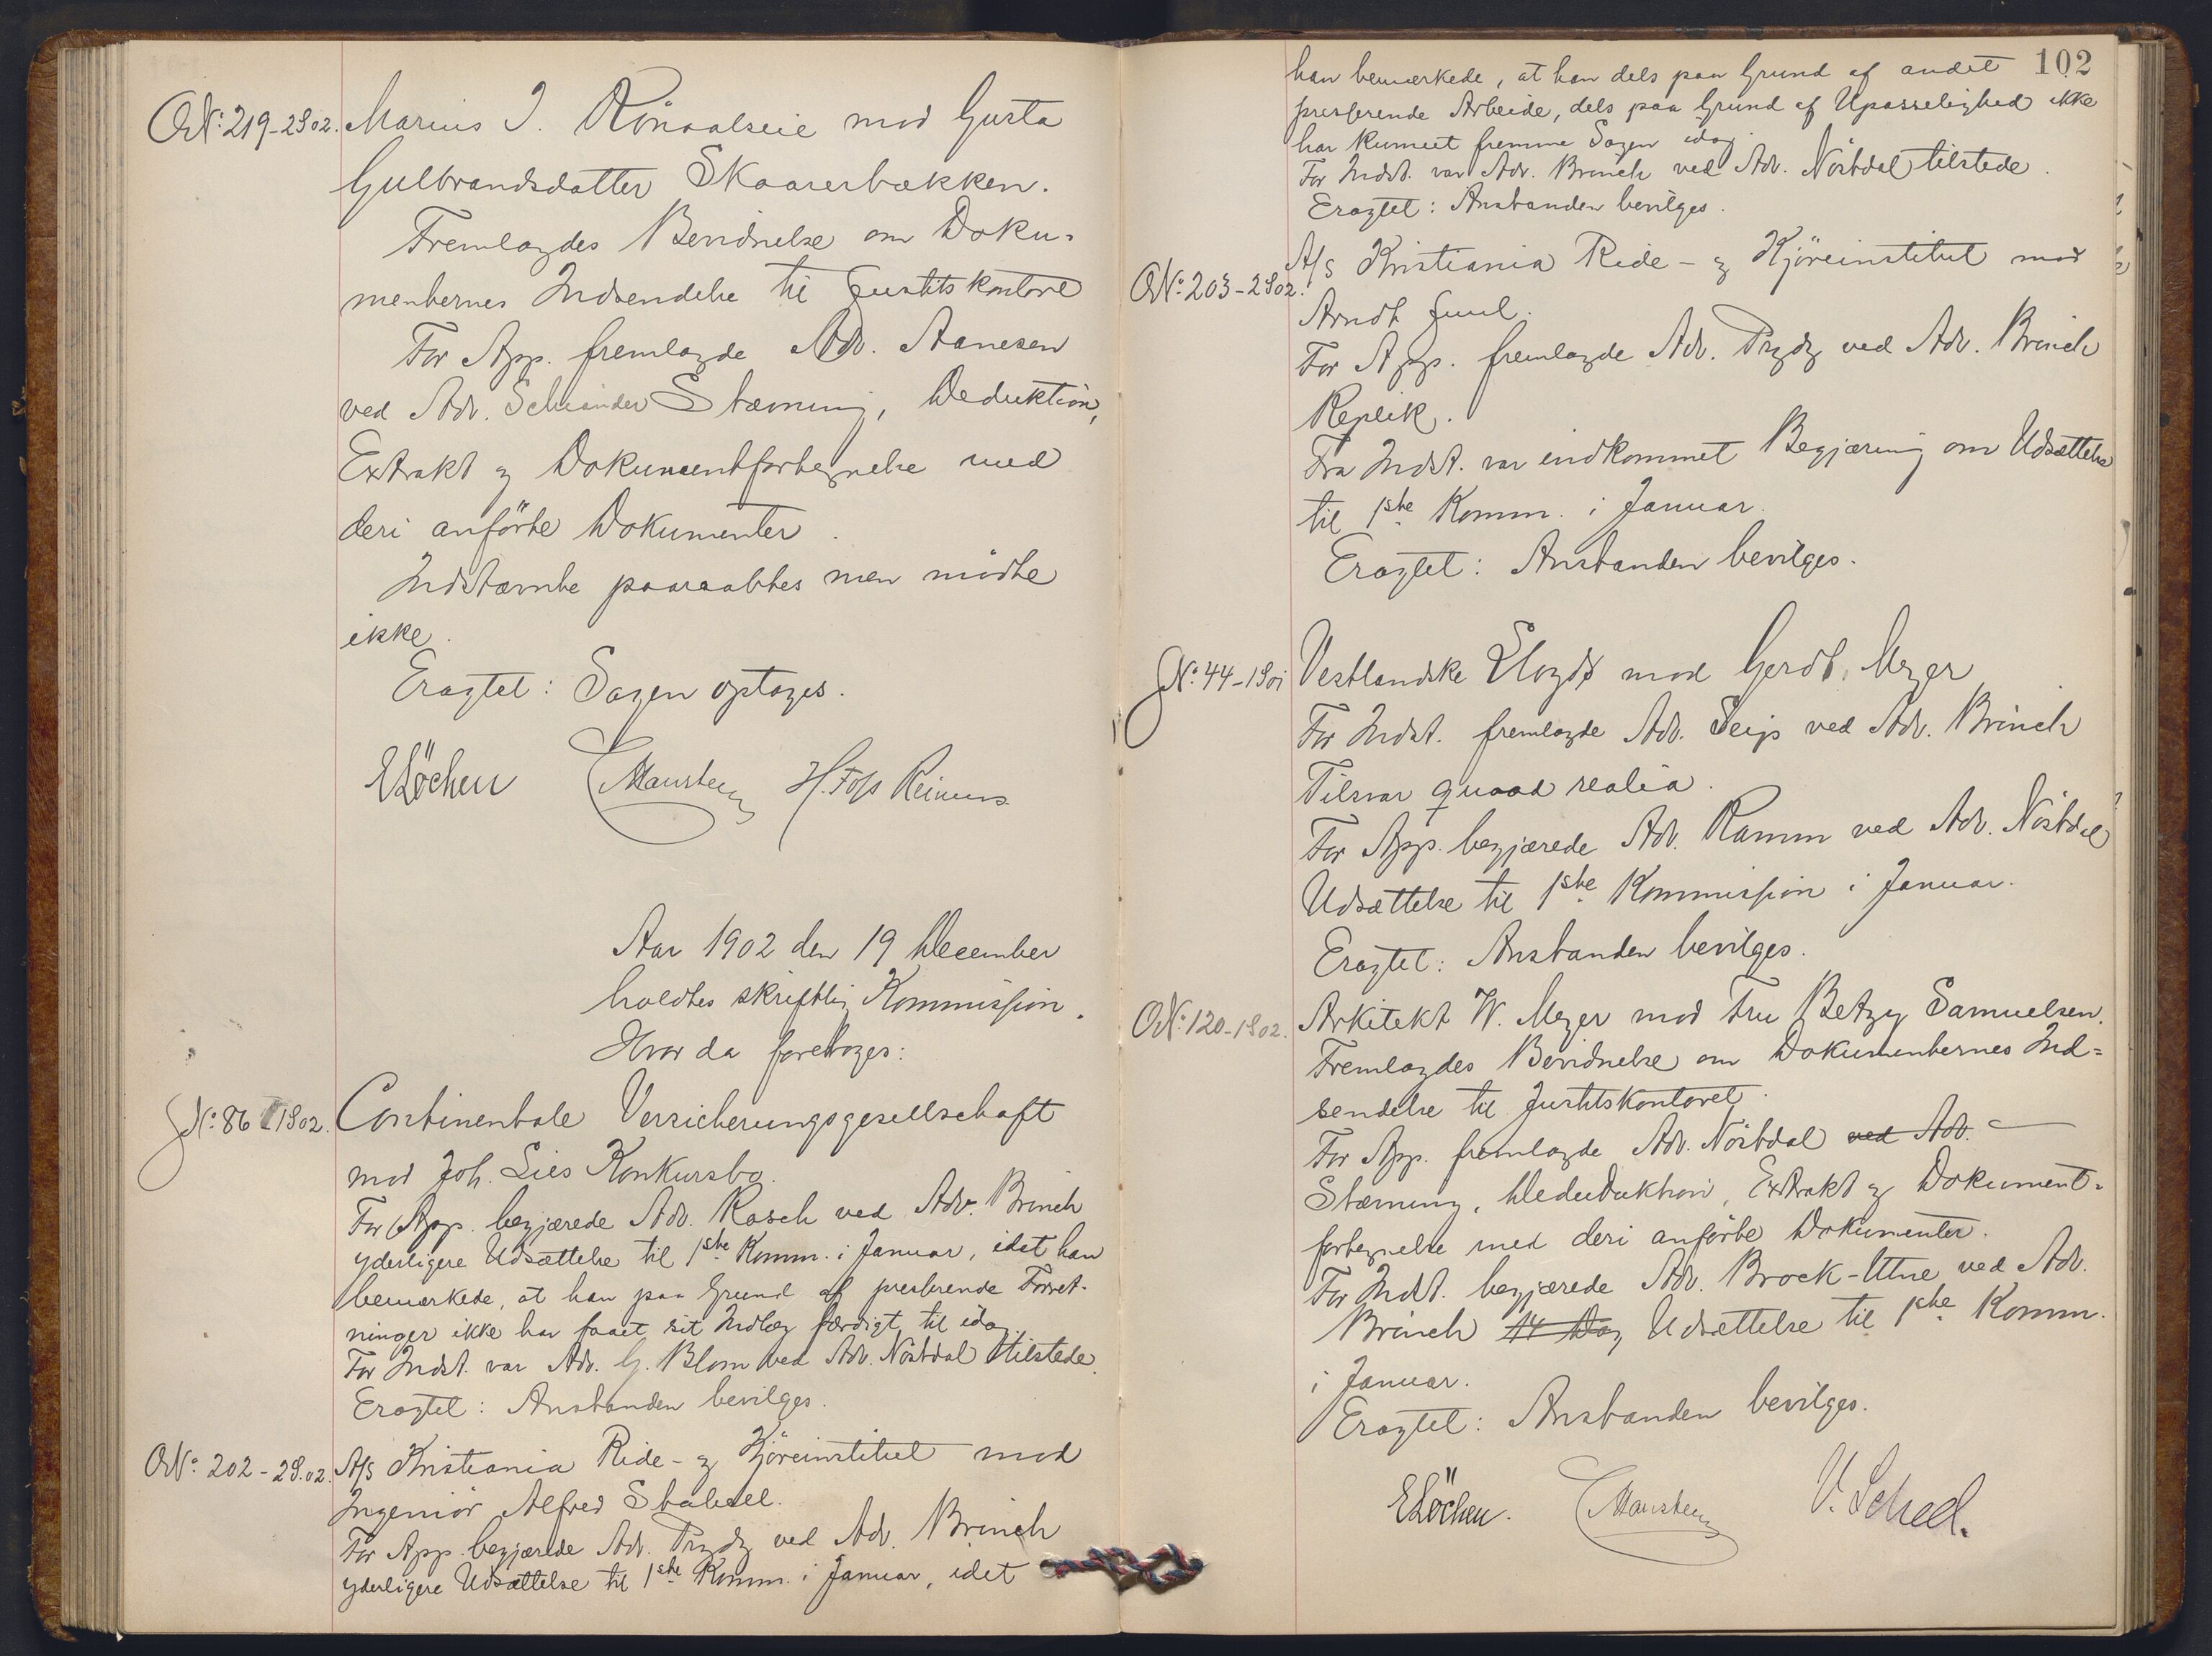 O.N: 219-2S02. Marius I. Rönaalseie mod Gusta
Gulbrandsdatter Skaarerbækken.
Fremlagdes Bevidnelse om Doku-
menternes Indsendelse til Justitskontoret
For App. fremlagde Adv. Aanesen
ved Adv. Schiander Stævning, Deduktion,
Extrakt og Dokumentfortegnelse med
deri anförte Dokumenter.
Indstævnte paaraabtes men mödte
ikke.
Eragtet: Sagen optages.
E Löchen CMarsteen H. Foss Reimers.
Aar 1902 den 19 December
holdtes skriftlig Kommission.
Hvor da foretoges:
J.N: 86 1S02. Continentale Versicherungsgesellschaft
mod Joh. Lies Konkursbo.
For App. begjærede Adv. Rasch ved Adv. Brinch
yderligere Udsættelse til 1ste Komm. i Januar, idet han
bemærkede, at han paa Grund af presserende Forret-
ninger ikke har faaet sit Indlæg færdigt til idag.
For Indst. var Adv. G. Blom ved Adv. Nöstdal tilstede.
Eragtet: Anstanden bevilges.
O.N: 202-2S.02. A/S Kristiania Ride- og Kjöreinstitut mod
Ingeniör Alfred Stabell.
For App. begjærede Adv. Prydz ved Adv. Brinch
yderligere Udsættelse til 1ste Komm. i Januar, idet
102
han bemærkede, at han dels paa Grund af andet
presserende Arbeide, dels paa Grund af Upasselighed ikke
har kunnet fremme Sagen idag
For Indst. var Adv. Brinch ved Adv. Nöstdal tilstede.
Eragtet: Anstanden bevilges.
O.N: 203-2S02. A/S Kristiania Ride- og Kjöreinstitut mod
Arndt Juul.
For App. fremlagde Adv. Prydz ved Adv. Brinch
Replik.
Fra Indst. var indkommet Begjæring om Udsættelse
til 1ste Komm. i Januar.
Eragtet: Anstanden bevilges.
J.N: 44-1S01 Vestlandske Lloyd mod Gerdt Meyer
For Indst. fremlagde Adv. Seip ved Adv. Brinch
Tilsvar quoad realia.
For App. begjærede Adv. Ramm ved Adv. Nöstdal
Udsættelse til 1ste Kommission i Januar.
Eragtet: Anstanden bevilges.
O.N: 120-1S02. Arkitekt W. Meyer mod Fru Betzy Samuelsen.
Fremlagdes Bevidnelse om Dokumenternes Ind=
sendelse til Justitskontoret.
For App. fremlagde Adv. Nöstdal ved Adv. —
Stævning, Dededuktion, Extrakt og Dokument-
fortegnelse med deri anförte Dokumenter.
For Indst. begjærede Adv. Brock-Utne ved Adv.
Brinch 14 Dag Udsættelse til 1ste Komm.
i Januar.
Eragtet: Anstanden bevilges.
E Löchen. CMarsteen V. Scheel.